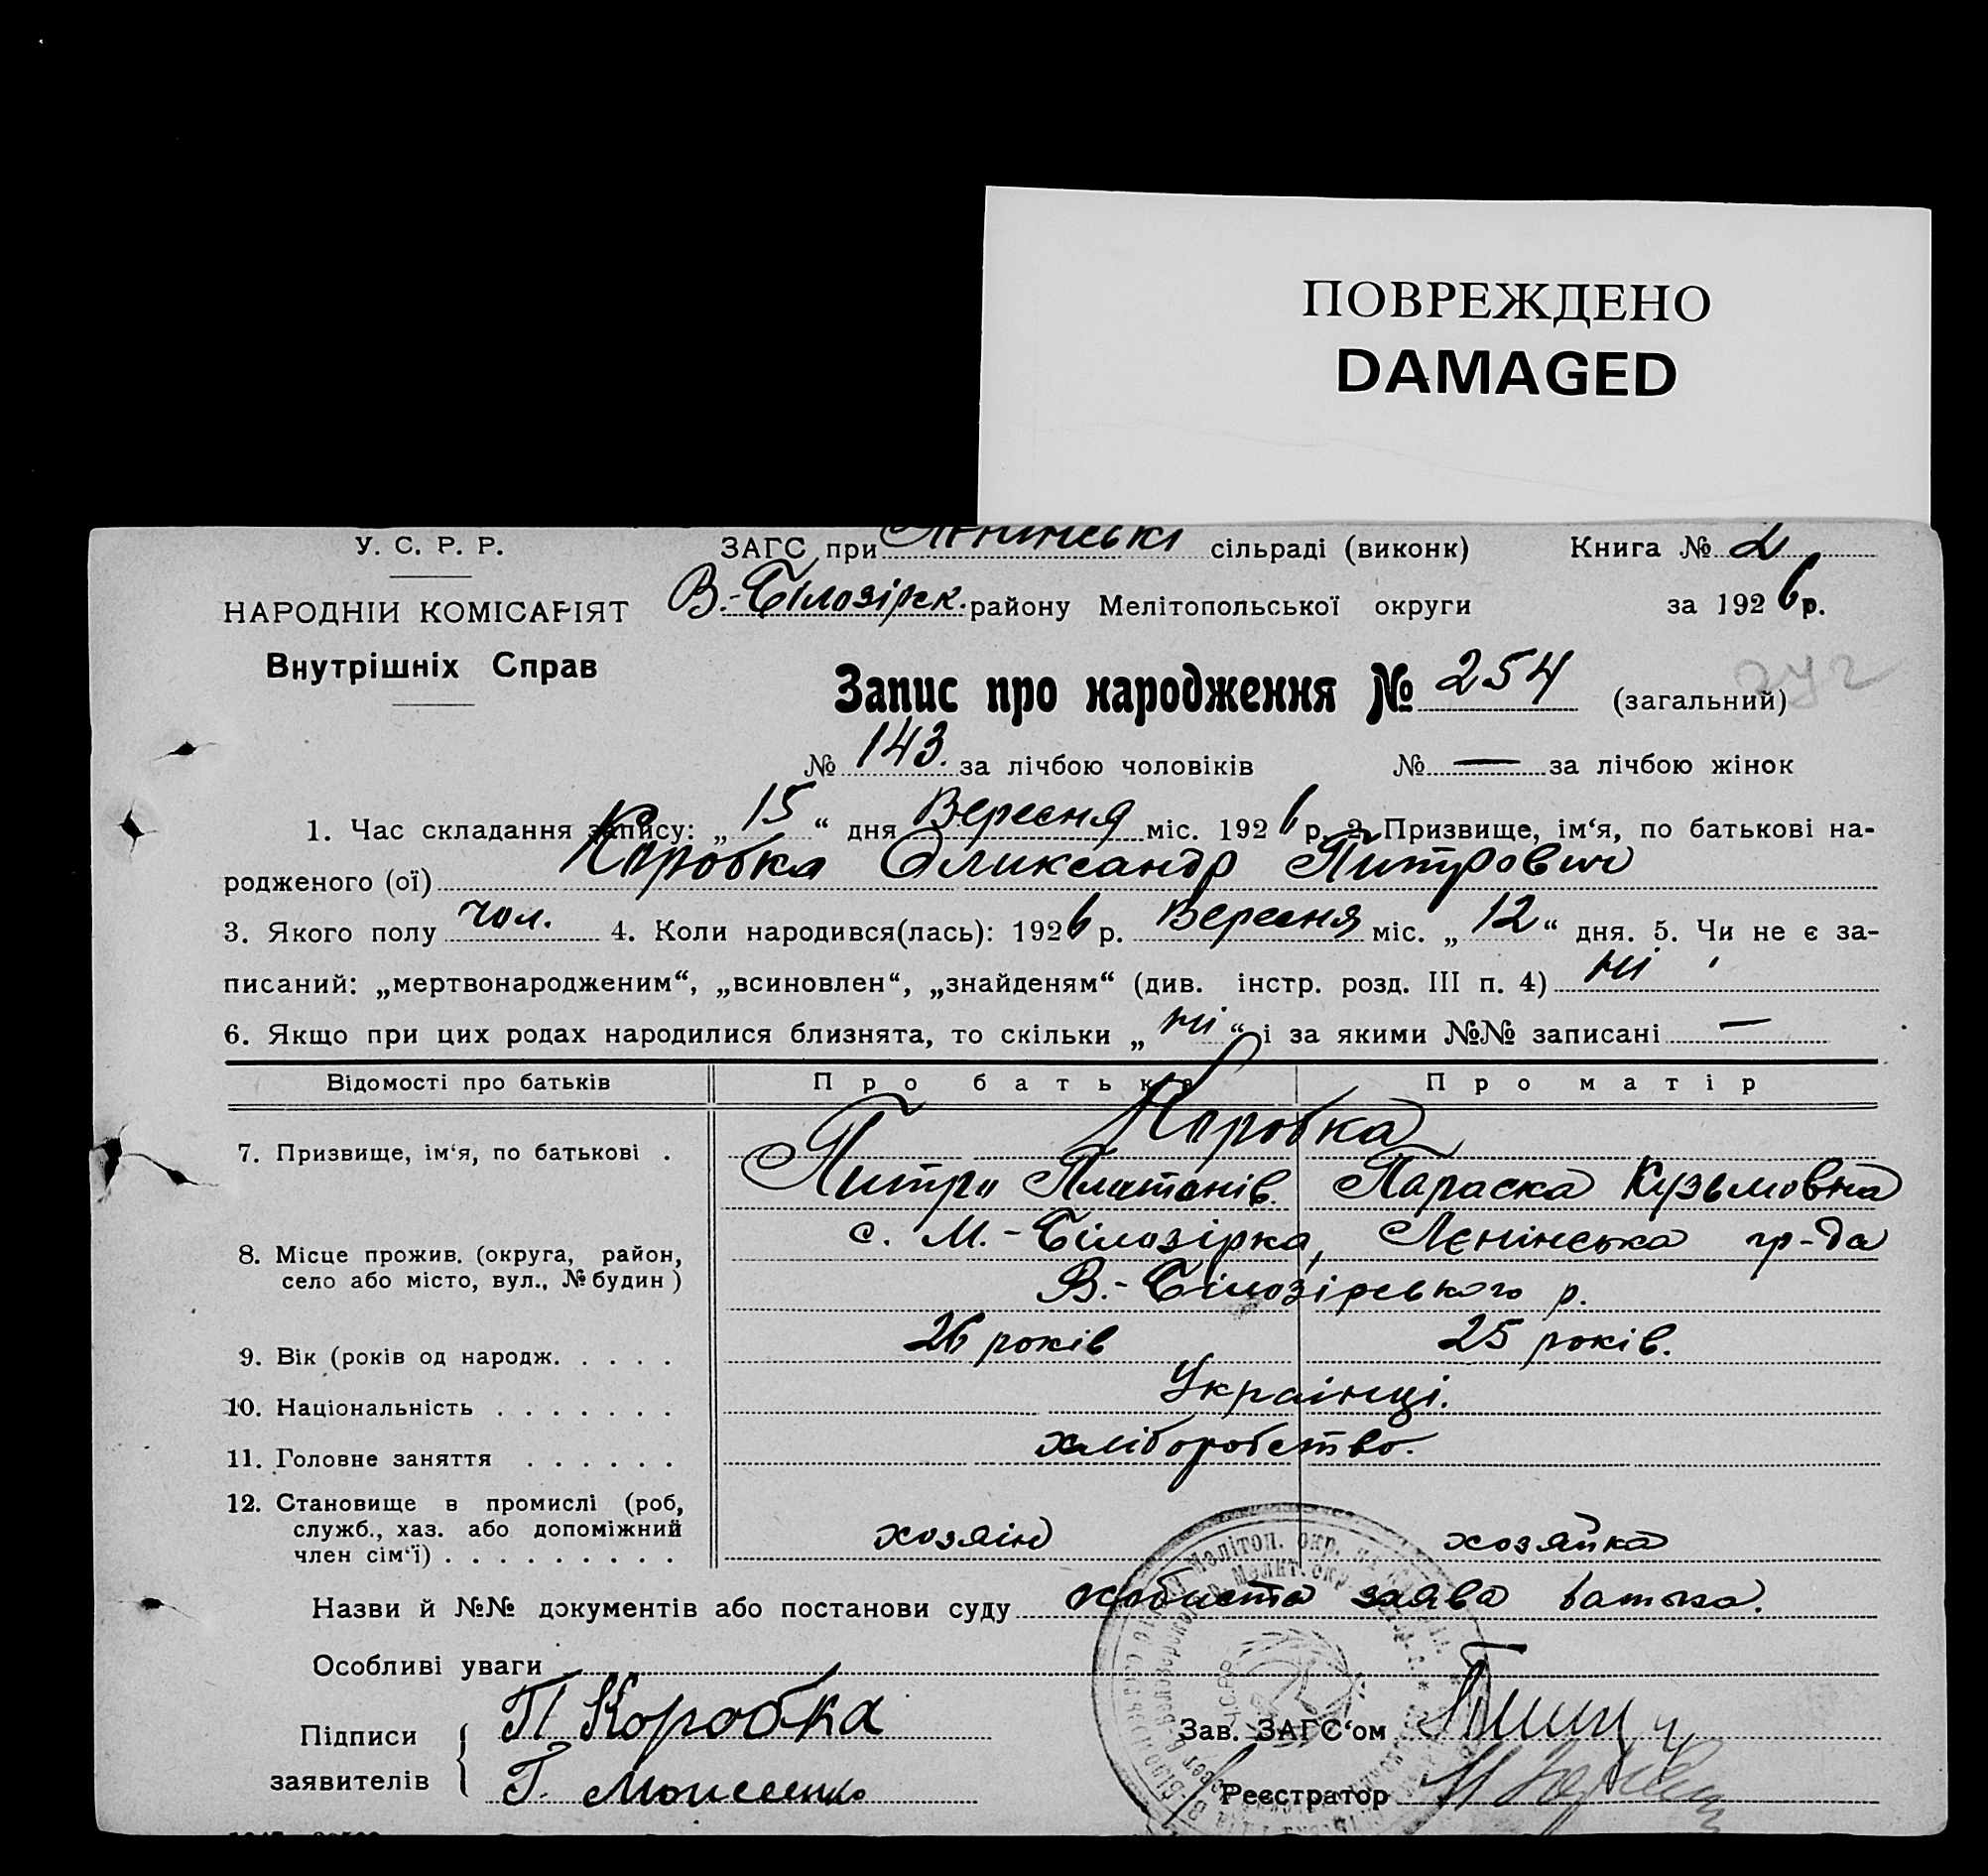 ПОВРЕЖДЕНО
DAMAGED
У. С. Р. Р.
ЗАГС при Ленінські сільраді (виконк) Книга № 2
НАРОДНІЙ КОМІСАРІЯТ
В.-Білозірск. району Мелітопольської округи за 1926 р.
Внутрішніх Справ
Запис про народження № 254 (загальний)
№ 143. за лічбою чоловіків № — за лічбою жінок
1. Час складання запису: „15“ дня Вересня міс. 1926 р. 2. Призвище, ім‘я, по батькові на-
родженого (ої) Коробка Олександр Питрович
3. Якого полу чол. 4. Коли народився(лась): 1926 р. Вересня міс. „12“ дня. 5. Чи не є за-
писаний: „мертвонародженим“, „всиновлен“, „знайденям“ (див. інстр. розд. III п. 4) ні
6. Якщо при цих родах народилися близнята, то скільки „ні“ і за якими №№ записані —
Відомості про батьків Про батька Про матір
7. Призвище, ім‘я, по батькові . Коробка
Питро Платонів. Параска Кузьмовна
8. Місце прожив. (округа, район, село або місто, вул., № будин) с. М.-Білозірка, Ленінська гр-да
В.-Білозірського р.
9. Вік (років од народж. . . . . 26 років 25 років.
10. Національність . . . . . . . Українці.
11. Головне заняття . . . . . . хліборобство.
12. Становище в промислі (роб,
служб., хаз. або допоміжний
член сім‘ї) . . . . . . . . . . хозяін хозяйка
Назви й №№ документів або постанови суду особиста заява батька.
Особливі уваги
Підписи П Коробка Зав. ЗАГС‘ом
заявителів Г. Моисеенко Реєстратор